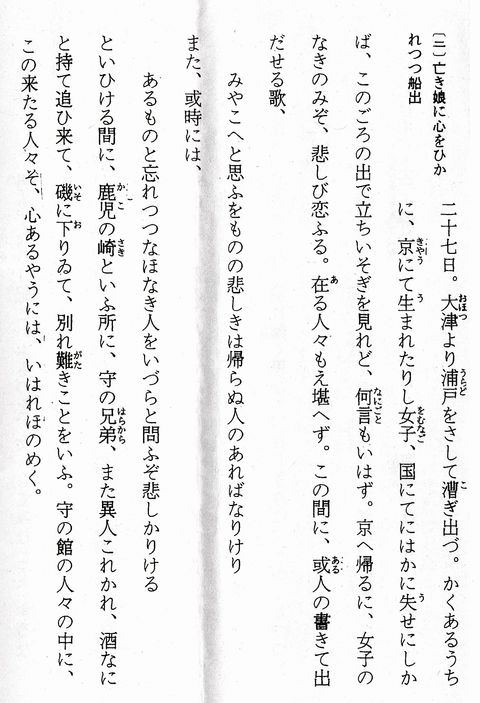 〔三〕亡き娘に心をひか
れつつ船出
二十七日。大津より浦戸をさして漕ぎ出づ。かくあるうち
に、京にて生まれたりし女子、国にてにはかに失せにしか
ば、このごろの出で立ちいそぎを見れど、何言もいはず。京へ帰るに、女子の
なきのみぞ、悲しび恋ふる。在る人々もえ堪へず。この間に、或人の書きて出
だせる歌、
みやこへと思ふをものの悲しきは帰らぬ人のあればなりけり
また、或時には、
あるものと忘れつつなほなき人をいづらと問ふぞ悲しかりける
といひける間に、鹿児の崎といふ所に、守の兄弟、また異人これかれ、酒なに
と持て追ひ来て、磯に下りゐて、別れ難きことをいふ。守の館の人々の中に、
この来たる人々ぞ、心あるやうには、いはれほのめく。